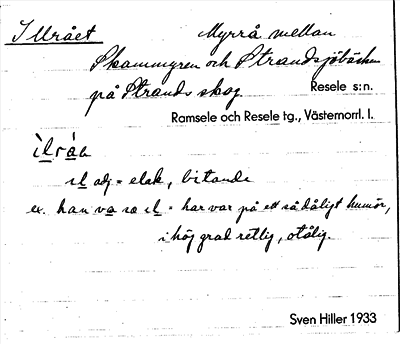 Illrået Myrrå mellan
Skammyren och Strandsjöbäcken
på Strands skog Resele s:n.
Ramsele och Resele tg., Västernorrl. l.
ìlråa
il adj = elak, bitande
ex. han va sa il = han var på ett så dåligt humör,
i hög grad retlig, otålig.
Sven Hiller 1933